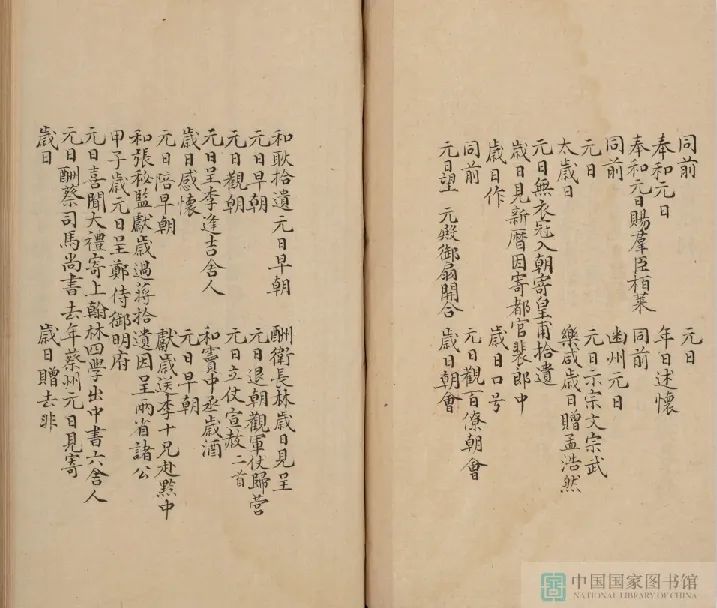 同前　元日
奉和元日　年日述懷
奉和元日賜羣臣柏葉　同前
同前　幽州元日
元日　元日示宗文宗武
太歲日　樂咸歲日贈孟浩然
元日無衣冠入朝寄皇甫拾遺
歲日見新曆因寄都官裴郎中
歲日作　歲日口号
同前　元日觀百僚朝會
元日望　元殿御扇開合　歲日朝會
和耿拾遺　元日早朝　酬衛長林歲日見呈
元日早朝　元日退朝觀軍仗歸營
元日觀朝　元日立仗宣赦二首
元日呈李逢吉舍人　和竇中丞歲酒
歲日感懷　元日早朝
元日陪早朝　獻歲送李十兄赴黔中
和張秘監獻歲過蔣拾遺因呈兩省諸公
甲子歲元日呈鄭侍御明府
元日喜聞大禮寄上翰林四學士中書六舍人
元日酬蔡司馬尚書去年蔡州元日見寄
歲日　歲日贈去非
中国国家图书馆
NATIONAL LIBRARY OF CHINA